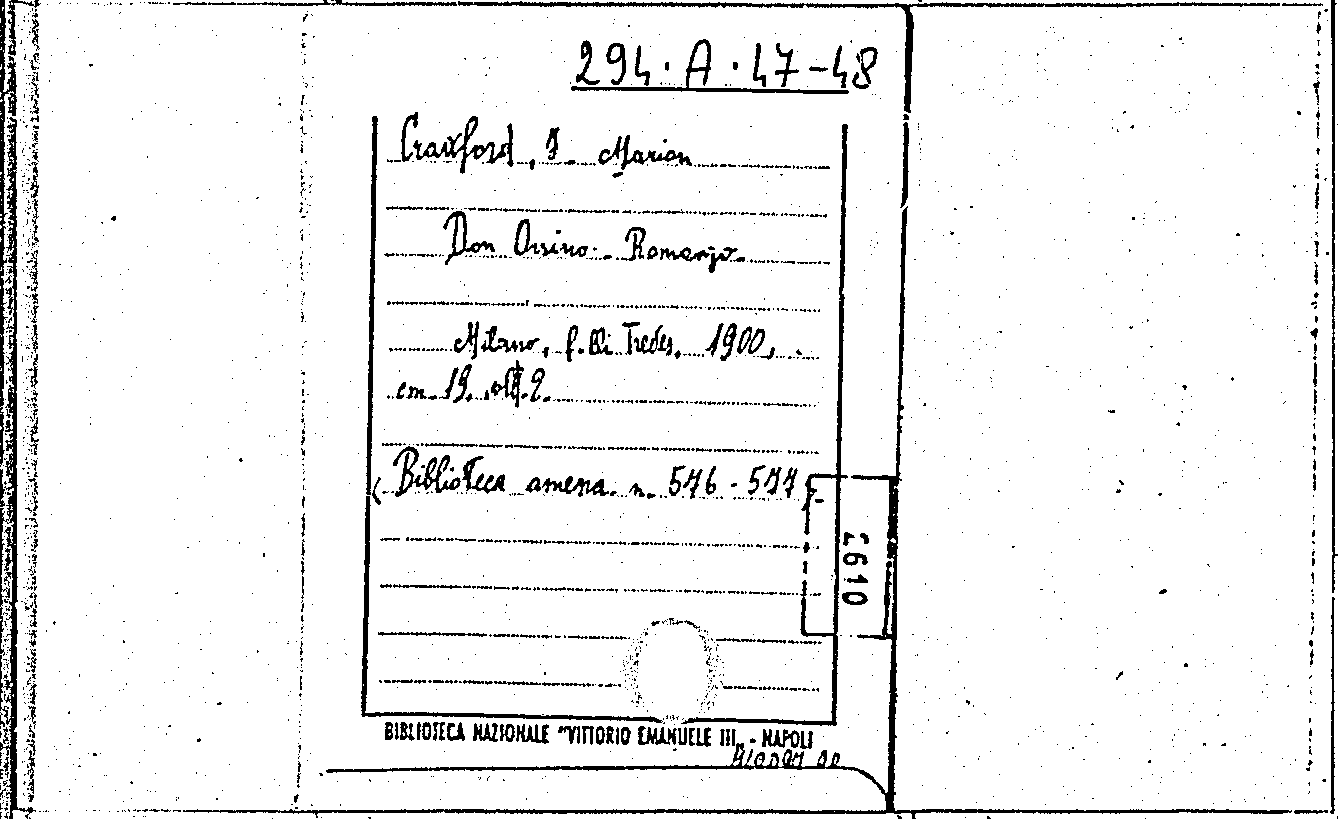 294.A.47-48
Crawford, F. Marion
Don Orsino. Romanzo.
Milano, f.lli Treves, 1900,
cm. 19. voll. 2.
(Biblioteca amena. n. 576-577).
2610
BIBLIOTECA NAZIONALE "VITTORIO EMANUELE III„ - NAPOLI